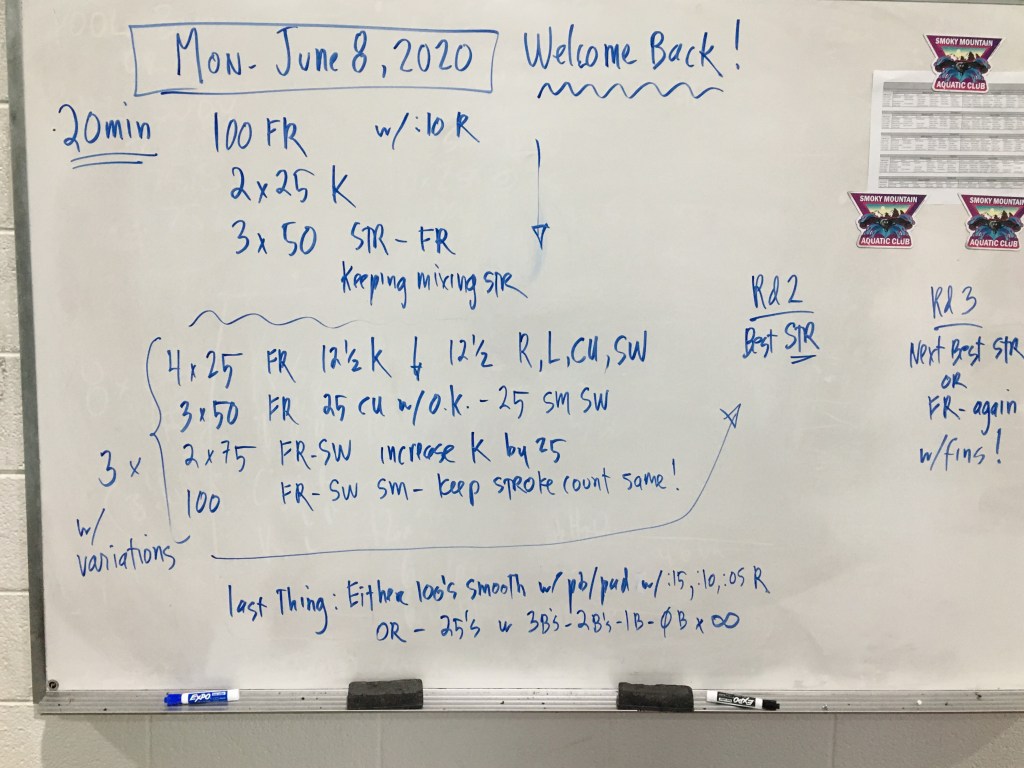 Mon- June 8, 2020
Welcome Back!
20min
100 FR w/ :10 R
2 x 25 K
3 x 50 STR - FR
Keeping mixing STR
3 x
w/
variations
4 x 25 FR 12½ K ↓ 12½ R, L, CU, SW
3 x 50 FR 25 CU w/O.K. - 25 SM SW
2 x 75 FR-SW increase K by 25
100 FR - SW SM - Keep STROKE COUNT SAME!
Rd 2
Best STR
Rd 3
Next Best STR
OR
FR- again
w/fins!
last Thing: Either 100's smooth w/ pb/pad w/ :15, :10, :05 R
OR - 25's w 3B's - 2B's - 1B - ØB x ∞
SMOKY MOUNTAIN
AQUATIC CLUB
SMOKY MOUNTAIN
AQUATIC CLUB
SMOKY MOUNTAIN
AQUATIC CLUB
EXPO
EXPO